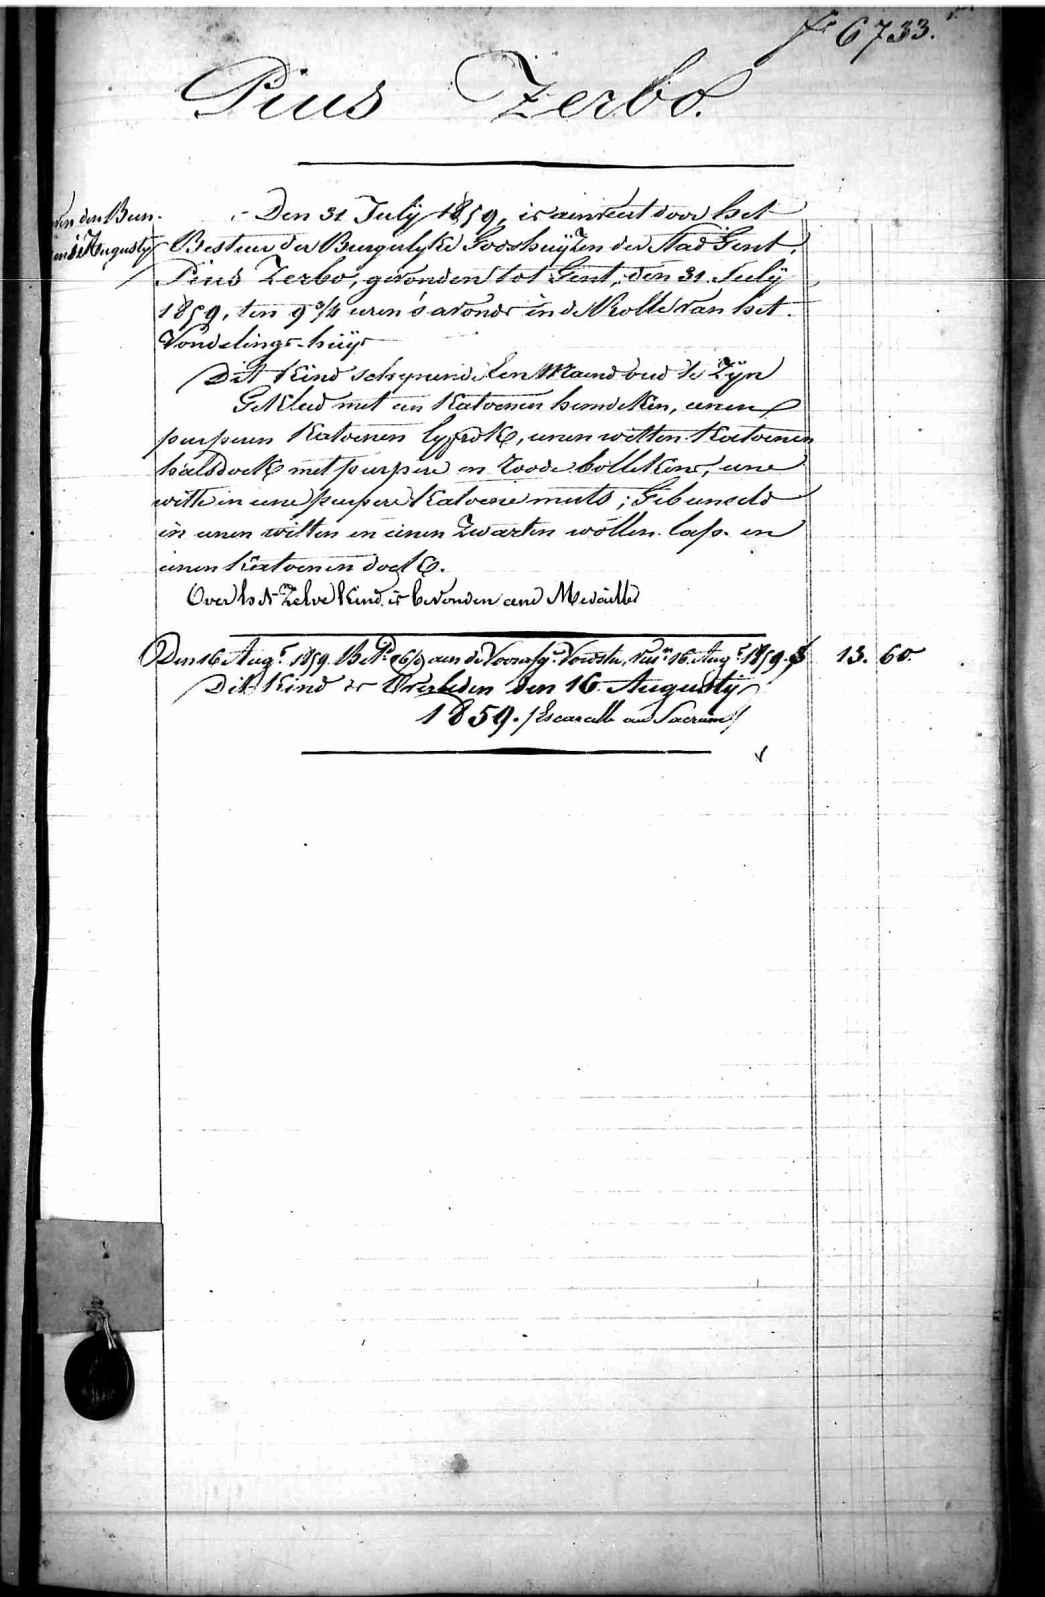 6733.
Pius Zerbo.
den Bum.
Augusty
Den 31 July 1859, is aenveert door het
Bestuer der Burgerlyke Godshuyzen der Stad Gent,
Pius Zerbo, gevonden tot Gent, den 31 July
1859, ten 9 3/4 uren s'avonds in de Rolle van het
Vondelings-huys
Dit Kind schynende Een Maend oud te Zyn
Gekleed met een Katoenen hemdeken, eenen
purperen Katoenen lyfrok, eenen witten Katoenen
halsdoek met purpere en roode bollekens, eene
witte en eene purpere Katoene muts; Gebunseld
in eenen witten en eenen Zwarten wollen lap en
eenen Katoenen doek.
Over het Zelve Kind is bevonden eene Medaille
Den 16 Aug.t 1859. aen de 16 Aug.t 1859. 13. 60.
Dit Kind is Overleden den 16 Augusty
1859. /Escarelle au Sacrum/